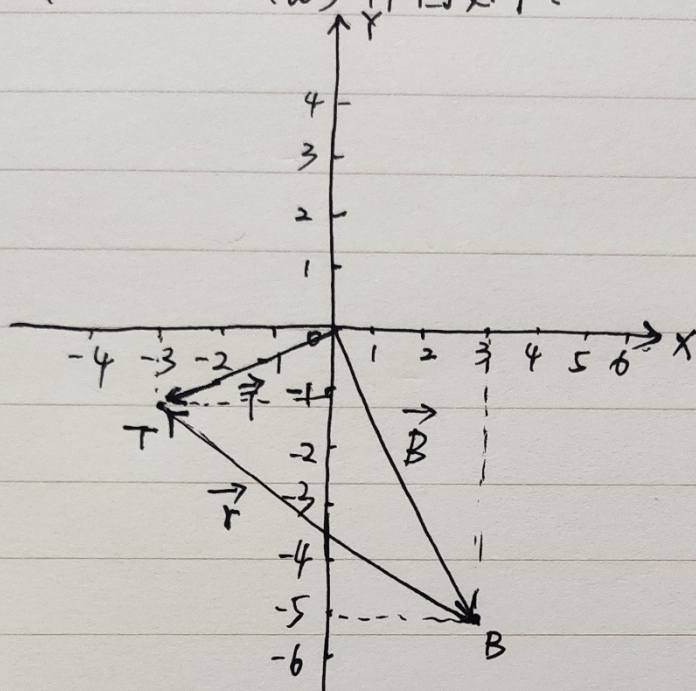 Y
4
3
2
1
-4 -3 -2 -1 0 1 2 3 4 5 6 X
T⃗ -1
T
B⃗
-2
r⃗ -3
-4
-5
B
-6